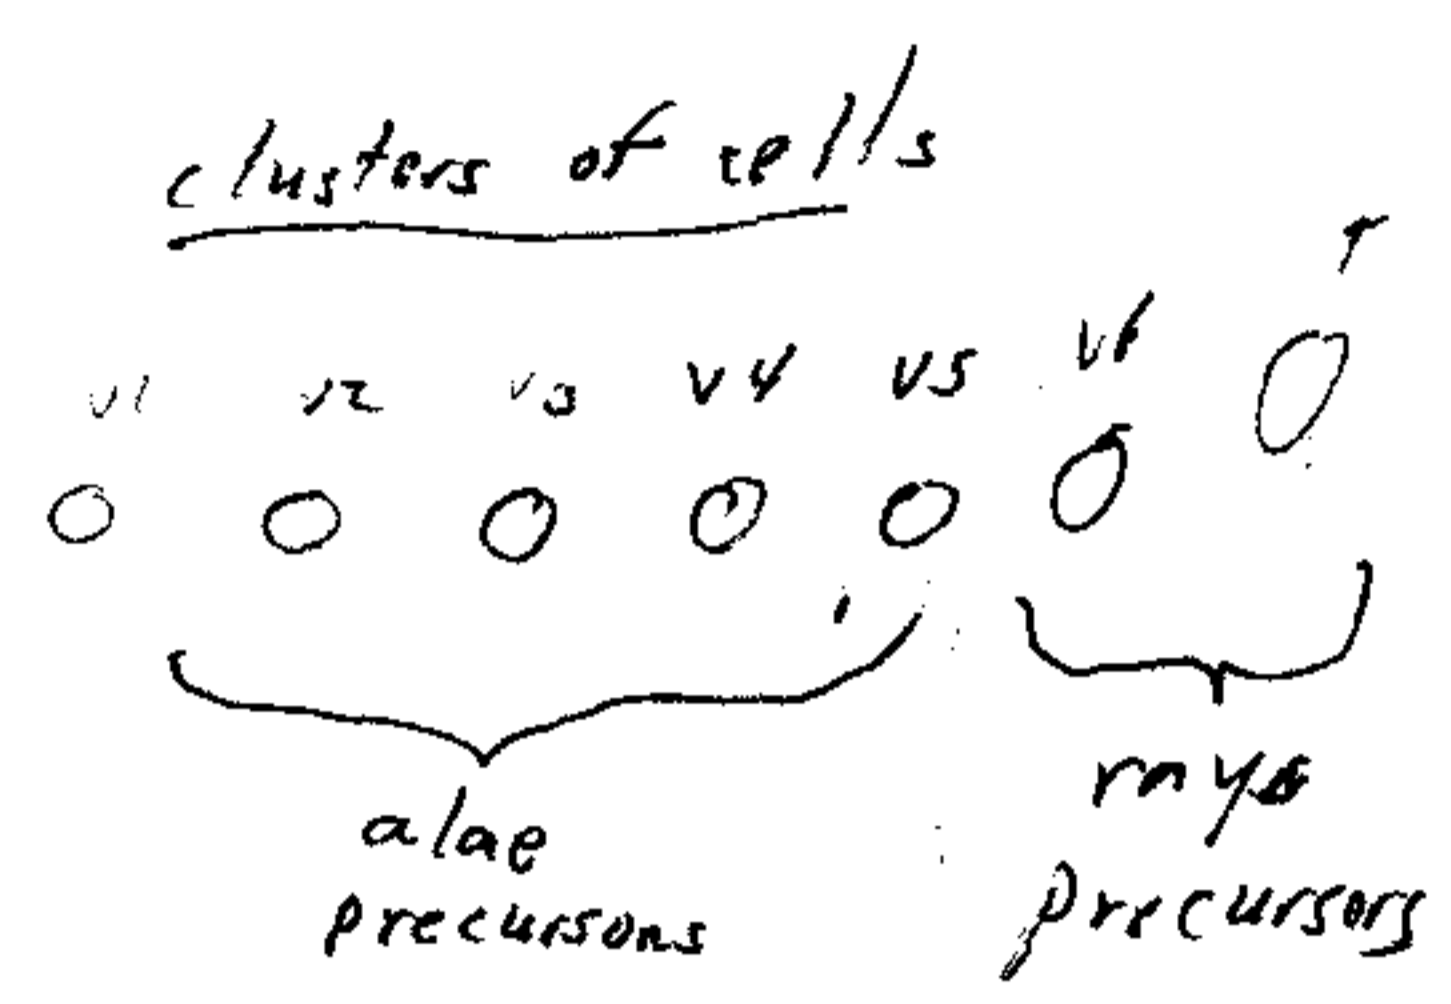 clusters of cells
T
v1 v2 v3 v4 v5 v6
alae
precursors
rays
precursors